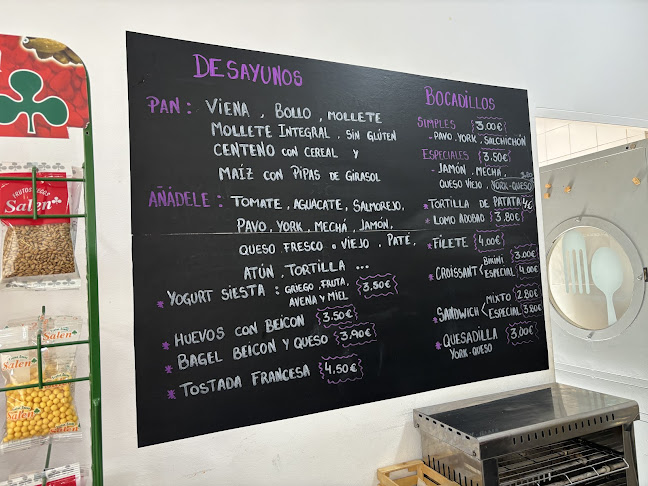 DESAYUNOS
PAN : VIENA , BOLLO , MOLLETE
MOLLETE INTEGRAL , SIN GLÚTEN
CENTENO CON CEREAL Y
MAÍZ CON PIPAS DE GIRASOL
AÑÁDELE : TOMATE, AGUACATE, SALMOREJO,
PAVO, YORK, MECHÁ, JAMÓN,
QUESO FRESCO o VIEJO , PATÉ,
ATÚN, TORTILLA ...
* YOGURT SIESTA : GRIEGO, FRUTA,
AVENA Y MIEL 3,50€
* HUEVOS CON BEICON 3,50€
* BAGEL BEICON Y QUESO 3,90€
* TOSTADA FRANCESA 4,50€
BOCADILLOS
SIMPLES 3,00€
- PAVO, YORK, SALCHICHÓN
ESPECIALES 3,50€
- JAMÓN, MECHÁ
QUESO VIEJO, YORK-QUESO
* TORTILLA DE PATATA 4€
* LOMO ADOBAO 3,80€
* FILETE 4,00€
* CROISSANT < BIKINI 3,00€
ESPECIAL 4,00€
* SANDWICH < MIXTO 2,80€
ESPECIAL 3,80€
* QUESADILLA 3,00€
YORK-QUESO
Salen
Salen
Salen